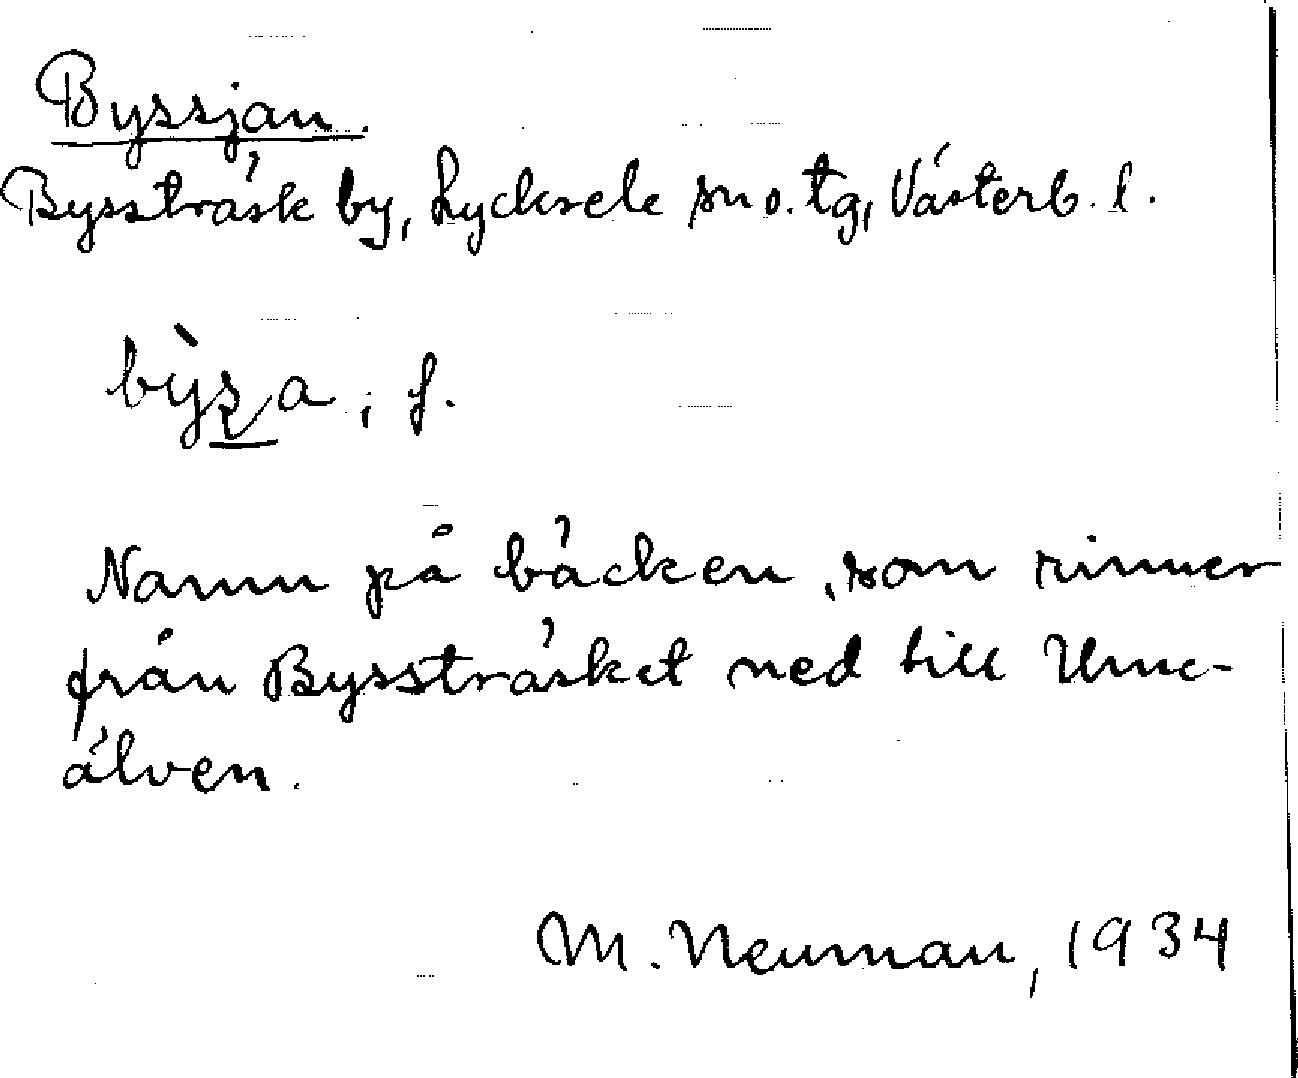 Byssjan.
Bysträsk by, Lycksele sn o. tg, Västerb. l.
, f.
Namn på bäcken, som rinner
från Bysträsket ned till Ume-
älven.
M. Neuman, 1934